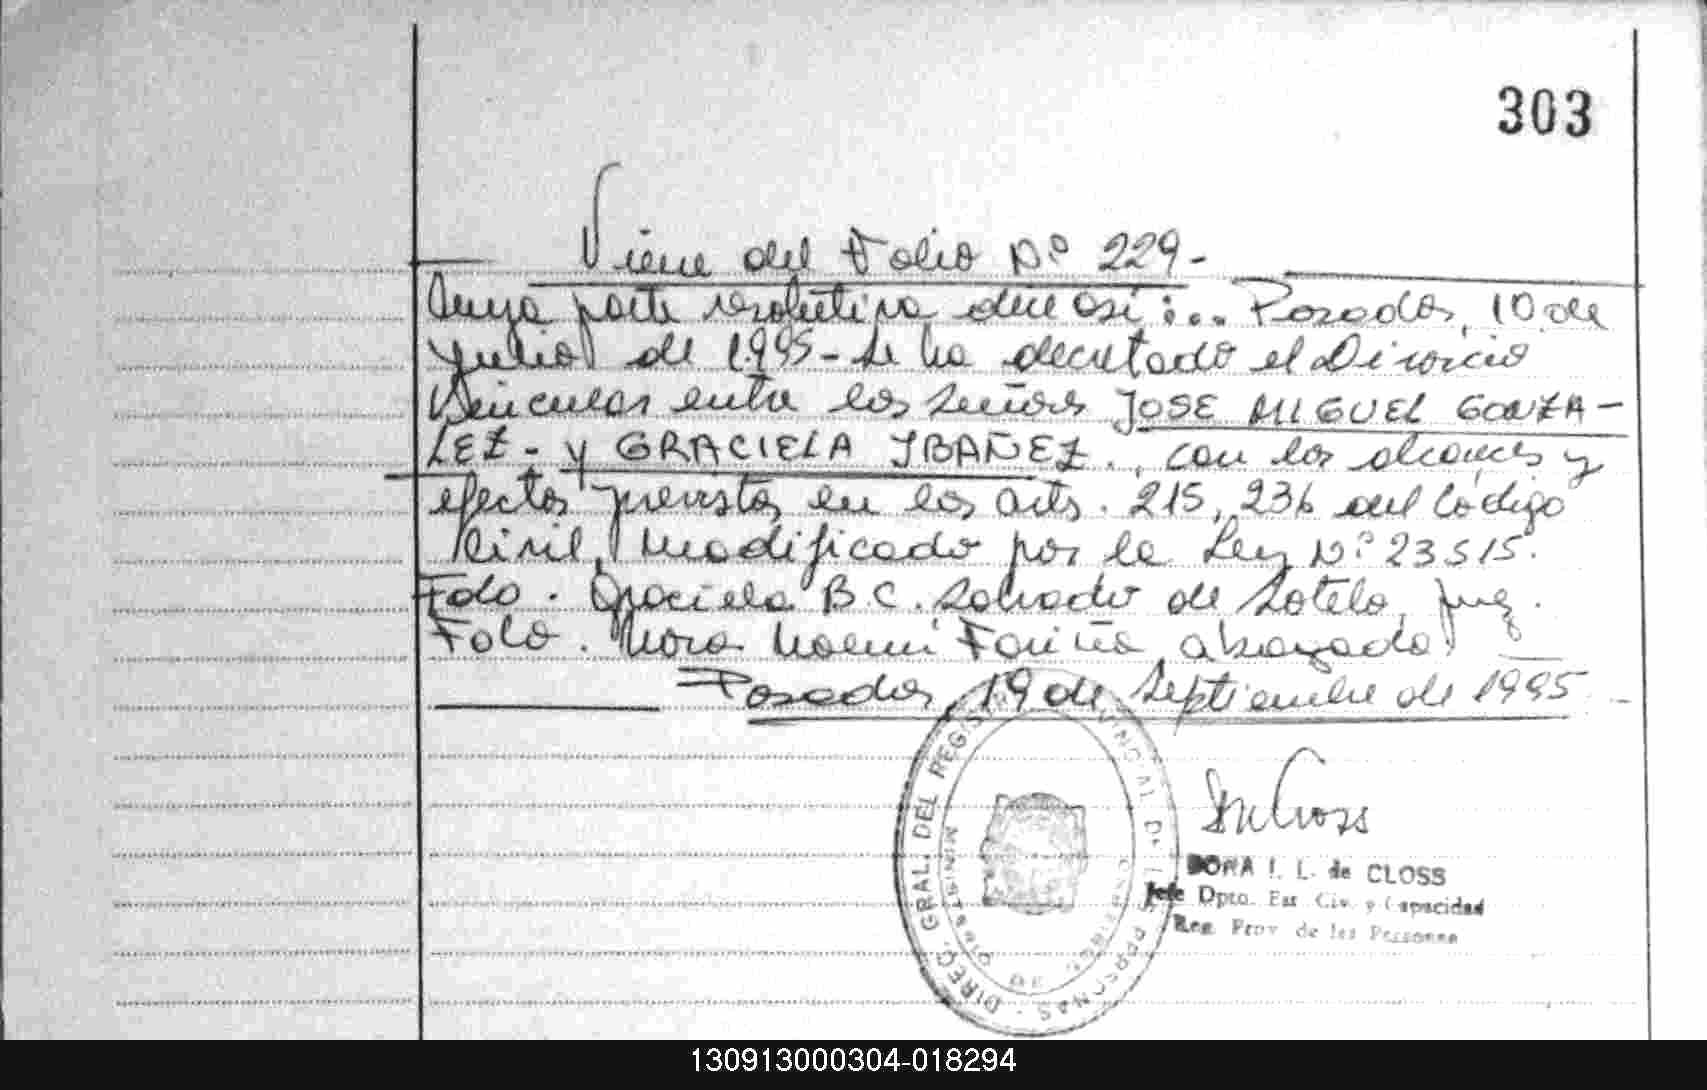 303
Viene del Folio Nº 229.-
Cuya parte resolutiva dice así:... Posadas, 10 de
Julio de 1995.- Se ha decretado el Divorcio
Vincular entre los señores JOSE MIGUEL GONZA-
LEZ - y GRACIELA IBAÑEZ., con los alcances y
efectos previstos en los arts. 215, 236 del Código
Civil, modificado por la Ley Nº 23515.
Fdo. Graciela B.C. Salvador de Sotelo, Juez.
Fdo. Nora Noemí Fariña, abogada.
Posadas, 19 de Septiembre de 1995
DIREC. GRAL. DEL REGIS
PERSONAS
DORA I. L. de CLOSS
Jefe Dpto. Est. Civ. y Capacidad
Reg. Prov. de las Personas
130913000304-018294